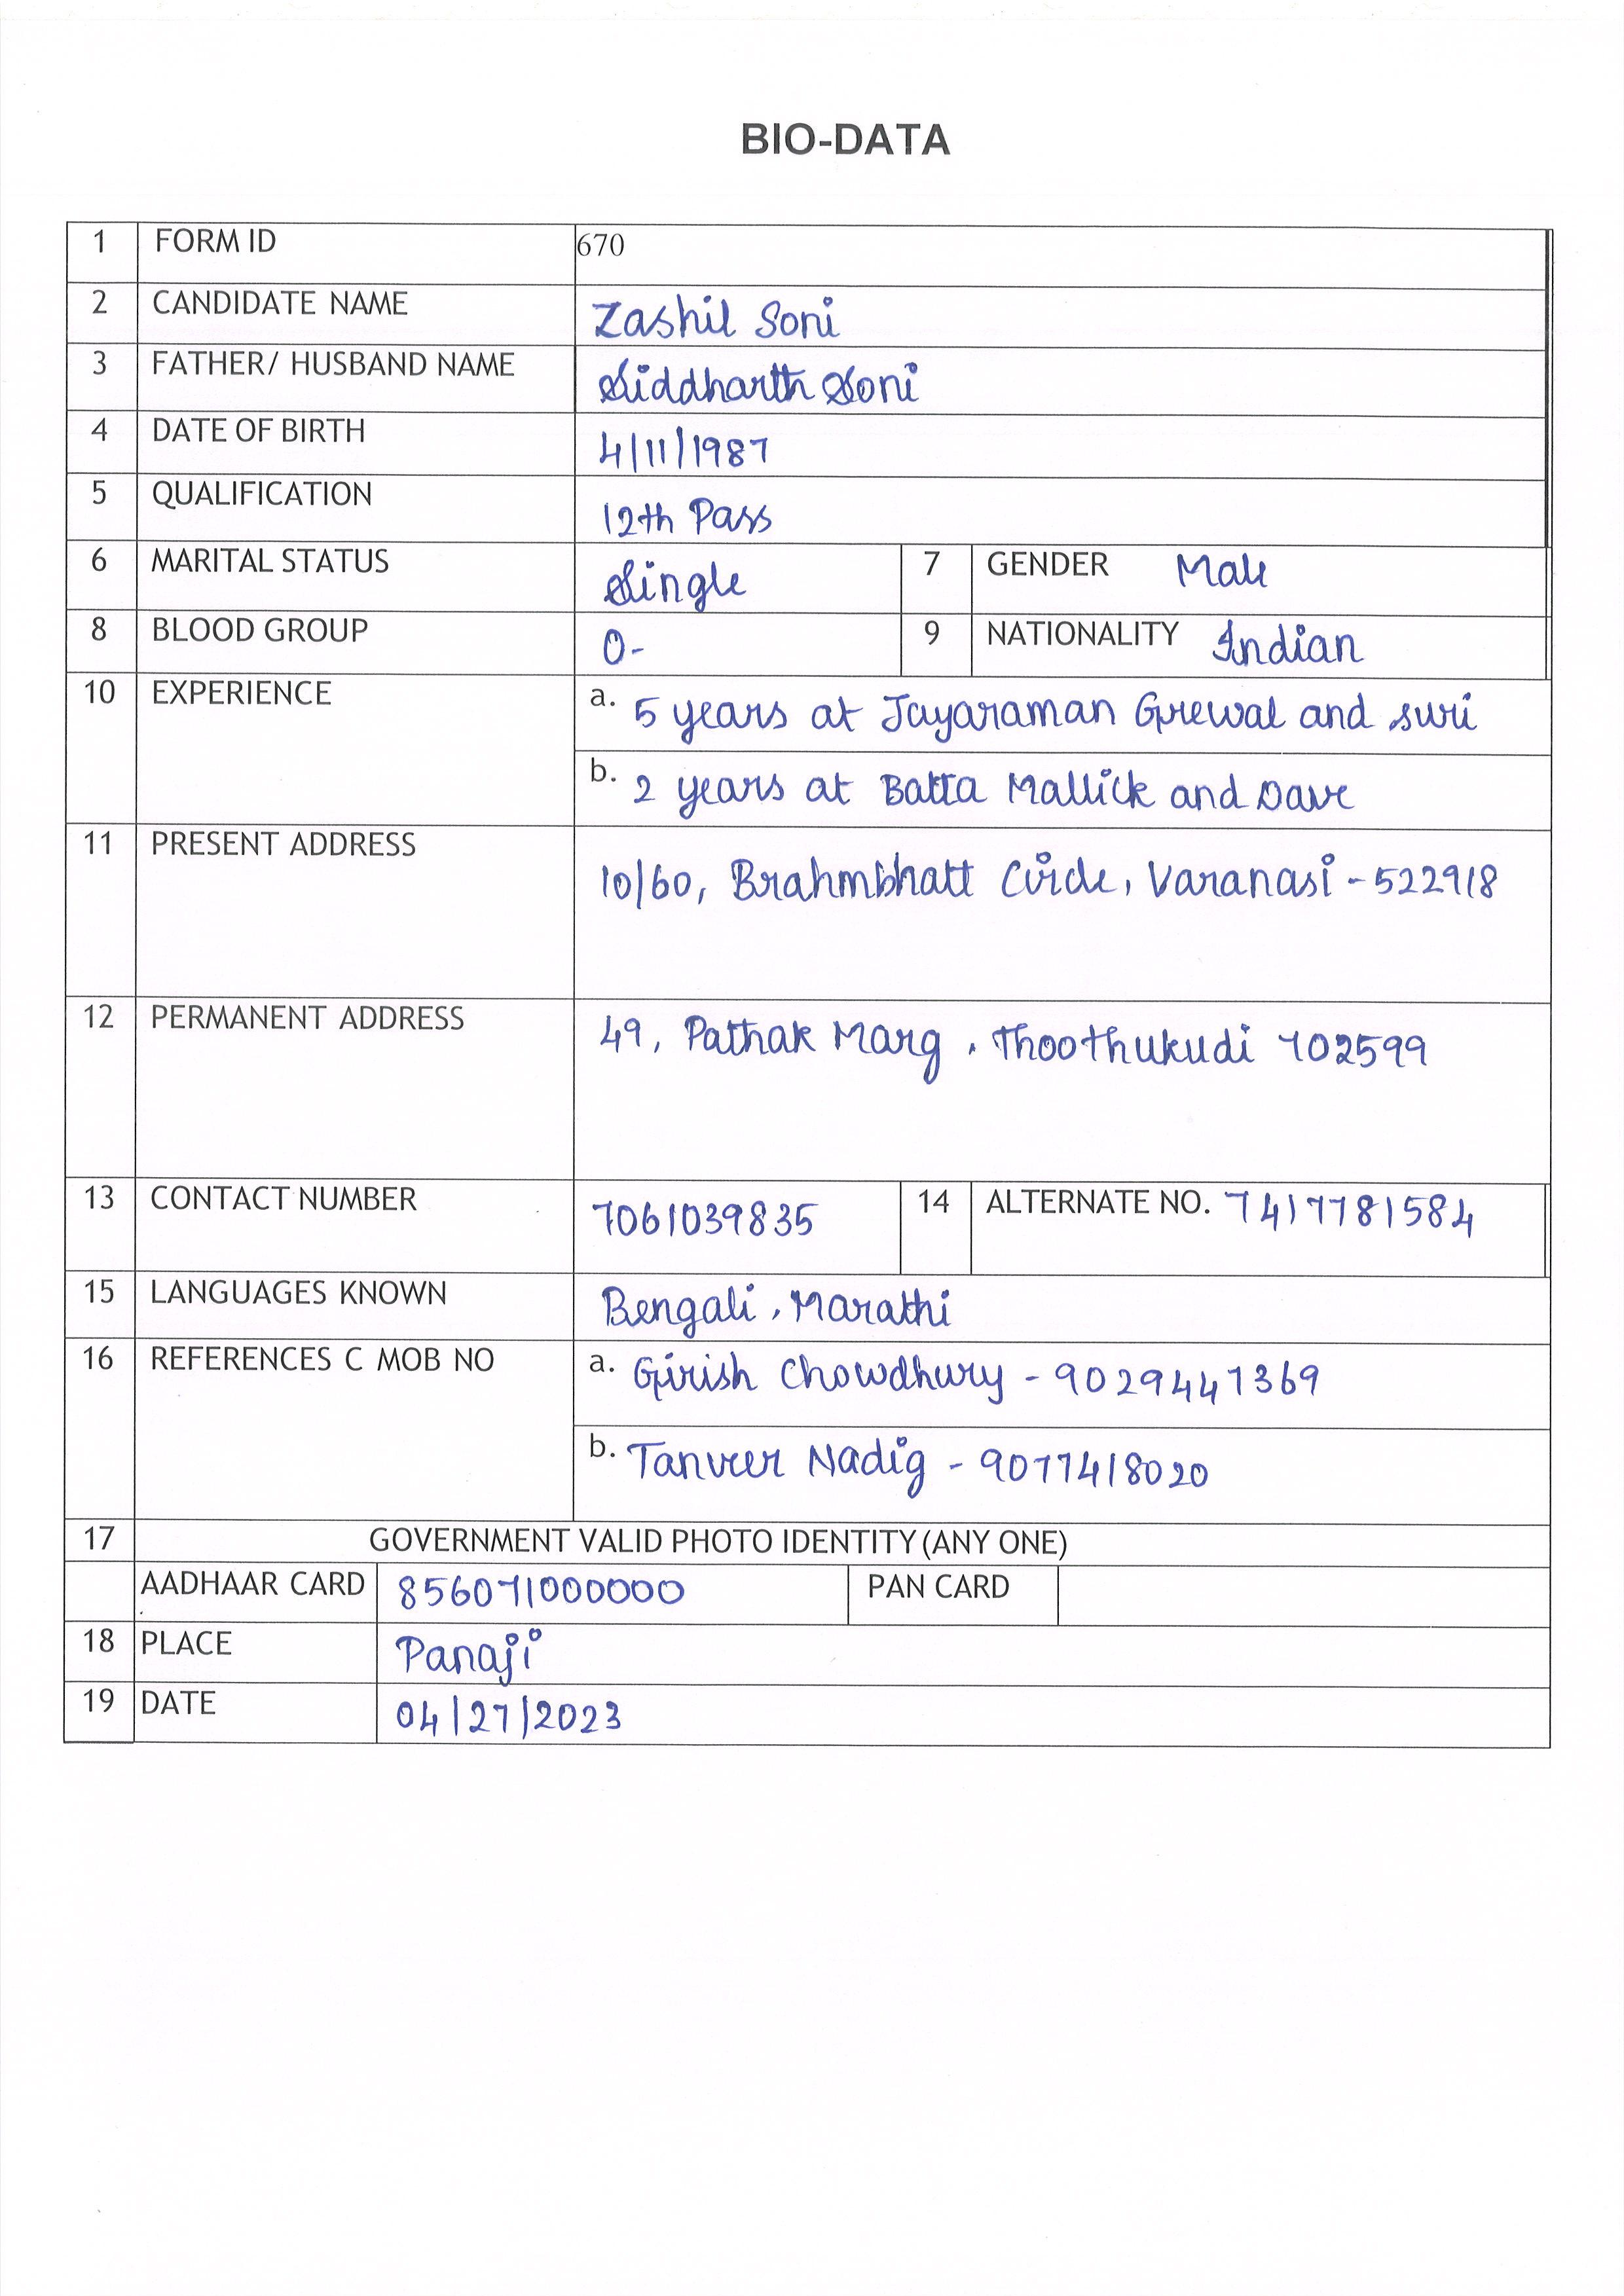 BIO-DATA
1 FORM ID 670
2 CANDIDATE NAME Zashil Soni
3 FATHER/ HUSBAND NAME Siddharth Soni
4 DATE OF BIRTH 4/11/1987
5 QUALIFICATION 12th Pass
6 MARITAL STATUS Single 7 GENDER Male
8 BLOOD GROUP O- 9 NATIONALITY Indian
10 EXPERIENCE a. 5 years at Jayaraman Grewal and suri
b. 2 years at Batta Mallick and Dave
11 PRESENT ADDRESS 10/60, Brahmbhatt Circle, Varanasi - 522918
12 PERMANENT ADDRESS 49, Pathak Marg, Thoothukudi 702599
13 CONTACT NUMBER 7061039835 14 ALTERNATE NO. 7417781584
15 LANGUAGES KNOWN Bengali, Marathi
16 REFERENCES C MOB NO a. Girish Chowdhury - 9029447369
b. Tanveer Nadig - 9077418020
17 GOVERNMENT VALID PHOTO IDENTITY (ANY ONE)
AADHAAR CARD 856071000000 PAN CARD
18 PLACE Panaji
19 DATE 04/27/2023